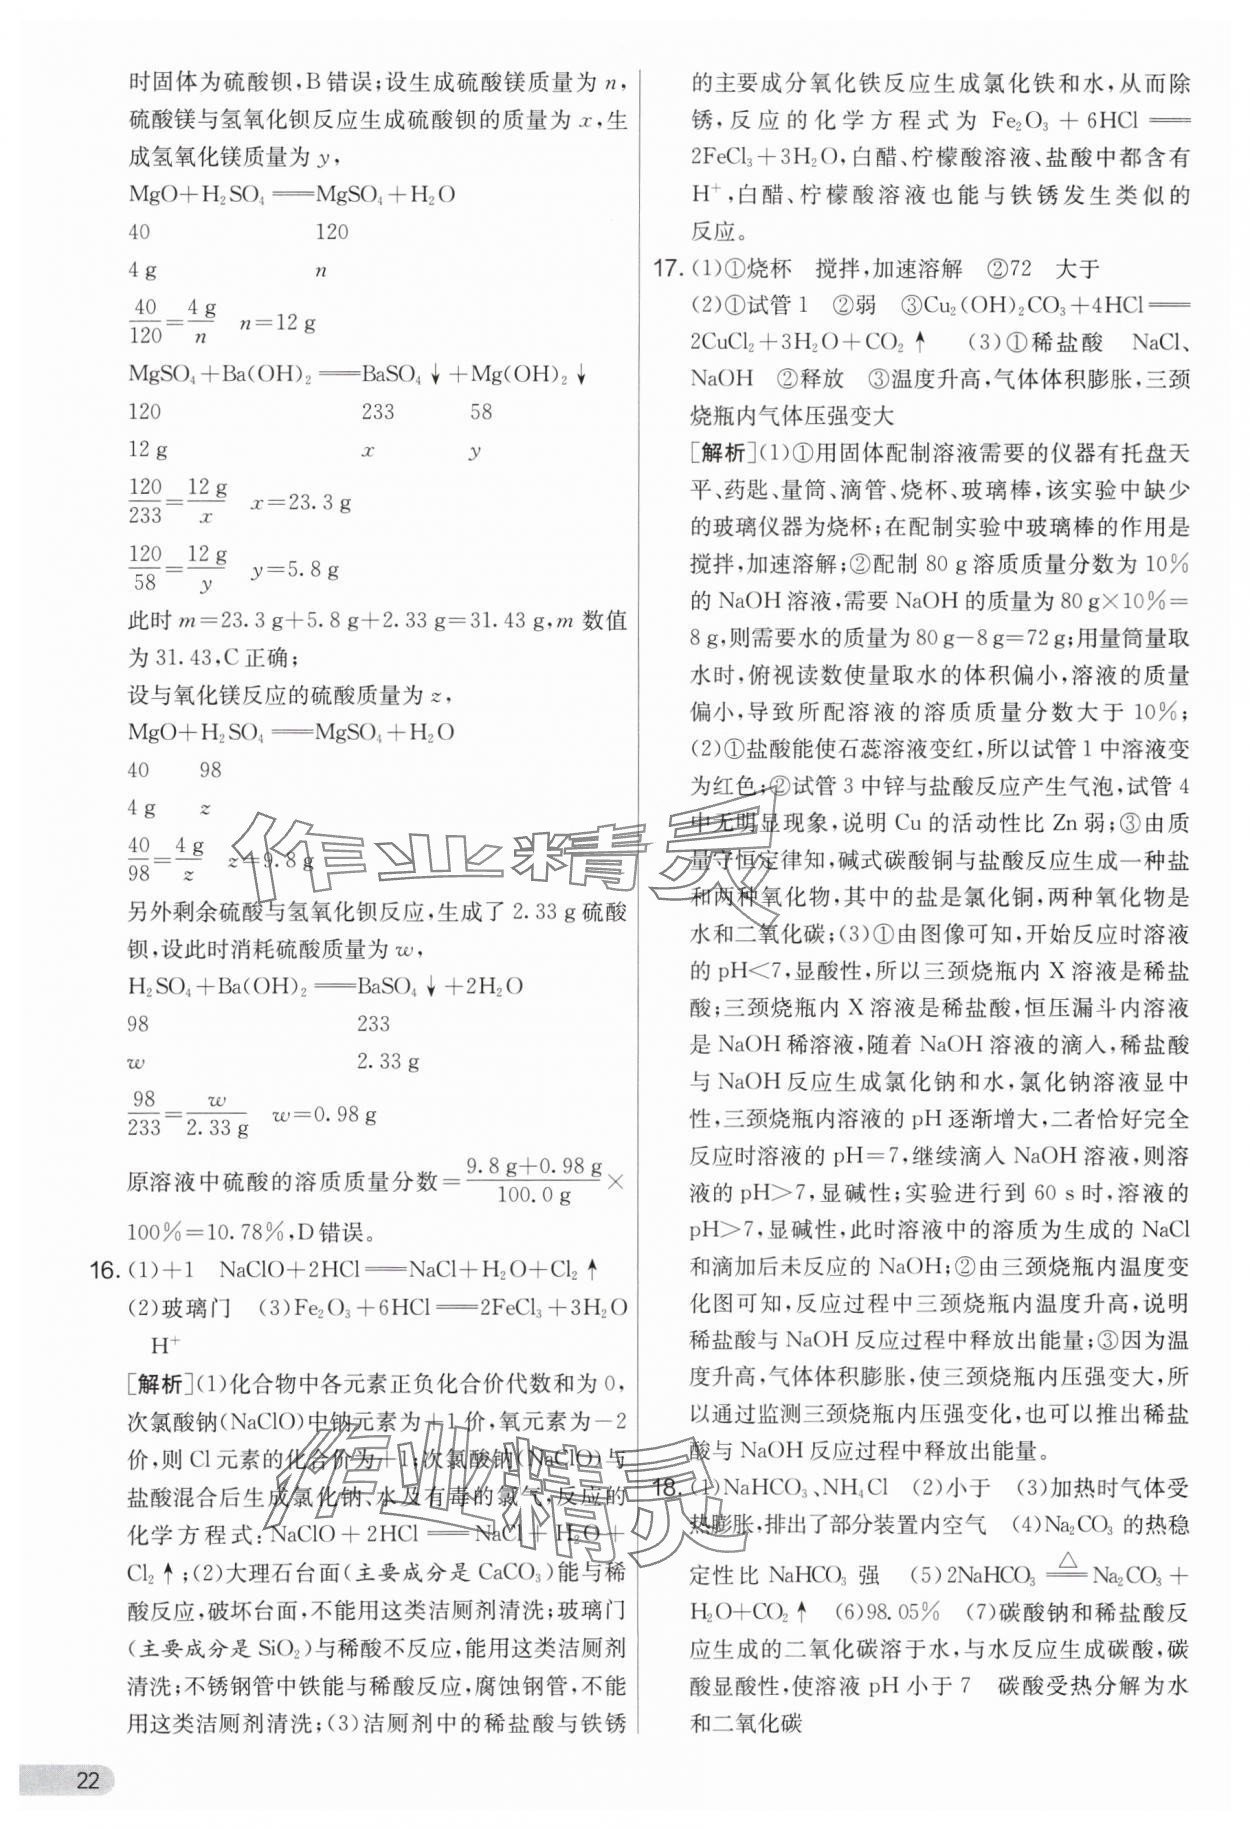 时固体为硫酸钡,B错误;设生成硫酸镁质量为n,
硫酸镁与氢氧化钡反应生成硫酸钡的质量为x,生
成氢氧化镁质量为y,
MgO+H₂SO₄══MgSO₄+H₂O
40 120
4 g n
40/120=4 g/n n=12 g
MgSO₄+Ba(OH)₂══BaSO₄↓+Mg(OH)₂↓
120 233 58
12 g x y
120/233=12 g/x x=23.3 g
120/58=12 g/y y=5.8 g
此时m=23.3 g+5.8 g+2.33 g=31.43 g,m数值
为31.43,C正确;
设与氧化镁反应的硫酸质量为z,
MgO+H₂SO₄══MgSO₄+H₂O
40 98
4 g z
40/98=4 g/z z=9.8 g
另外剩余硫酸与氢氧化钡反应,生成了2.33 g硫酸
钡,设此时消耗硫酸质量为w,
H₂SO₄+Ba(OH)₂══BaSO₄↓+2H₂O
98 233
w 2.33 g
98/233=w/2.33 g w=0.98 g
原溶液中硫酸的溶质质量分数=9.8 g+0.98 g/100.0 g×
100%=10.78%,D错误。
16. (1)+1 NaClO+2HCl══NaCl+H₂O+Cl₂↑
(2)玻璃门 (3)Fe₂O₃+6HCl══2FeCl₃+3H₂O
H⁺
[解析](1)化合物中各元素正负化合价代数和为0,
次氯酸钠(NaClO)中钠元素为+1价,氧元素为-2
价,则Cl元素的化合价为+1;次氯酸钠(NaClO)与
盐酸混合后生成氯化钠、水及有毒的氯气,反应的
化学方程式:NaClO+2HCl══NaCl+H₂O+
Cl₂↑;(2)大理石台面(主要成分是CaCO₃)能与稀
酸反应,破坏台面,不能用这类洁厕剂清洗;玻璃门
(主要成分是SiO₂)与稀酸不反应,能用这类洁厕剂
清洗;不锈钢管中铁能与稀酸反应,腐蚀钢管,不能
用这类洁厕剂清洗;(3)洁厕剂中的稀盐酸与铁锈
的主要成分氧化铁反应生成氯化铁和水,从而除
锈,反应的化学方程式为Fe₂O₃+6HCl══
2FeCl₃+3H₂O,白醋、柠檬酸溶液、盐酸中都含有
H⁺,白醋、柠檬酸溶液也能与铁锈发生类似的
反应。
17. (1)①烧杯 搅拌,加速溶解 ②72 大于
(2)①试管1 ②弱 ③Cu₂(OH)₂CO₃+4HCl══
2CuCl₂+3H₂O+CO₂↑ (3)①稀盐酸 NaCl、
NaOH ②释放 ③温度升高,气体体积膨胀,三颈
烧瓶内气体压强变大
[解析](1)①用固体配制溶液需要的仪器有托盘天
平、药匙、量筒、滴管、烧杯、玻璃棒,该实验中缺少
的玻璃仪器为烧杯;在配制实验中玻璃棒的作用是
搅拌,加速溶解;②配制80 g溶质质量分数为10%
的NaOH溶液,需要NaOH的质量为80 g×10%=
8 g,则需要水的质量为80 g-8 g=72 g;用量筒量取
水时,俯视读数使量取水的体积偏小,溶液的质量
偏小,导致所配溶液的溶质质量分数大于10%;
(2)①盐酸能使石蕊溶液变红,所以试管1中溶液变
为红色;②试管3中锌与盐酸反应产生气泡,试管4
中无明显现象,说明Cu的活动性比Zn弱;③由质
量守恒定律知,碱式碳酸铜与盐酸反应生成一种盐
和两种氧化物,其中的盐是氯化铜,两种氧化物是
水和二氧化碳;(3)①由图像可知,开始反应时溶液
的pH<7,显酸性,所以三颈烧瓶内X溶液是稀盐
酸;三颈烧瓶内X溶液是稀盐酸,恒压漏斗内溶液
是NaOH稀溶液,随着NaOH溶液的滴入,稀盐酸
与NaOH反应生成氯化钠和水,氯化钠溶液显中
性,三颈烧瓶内溶液的pH逐渐增大,二者恰好完全
反应时溶液的pH=7,继续滴入NaOH溶液,则溶
液的pH>7,显碱性;实验进行到60 s时,溶液的
pH>7,显碱性,此时溶液中的溶质为生成的NaCl
和滴加后未反应的NaOH;②由三颈烧瓶内温度变
化图可知,反应过程中三颈烧瓶内温度升高,说明
稀盐酸与NaOH反应过程中释放出能量;③因为温
度升高,气体体积膨胀,使三颈烧瓶内压强变大,所
以通过监测三颈烧瓶内压强变化,也可以推出稀盐
酸与NaOH反应过程中释放出能量。
18. (1)NaHCO₃、NH₄Cl (2)小于 (3)加热时气体受
热膨胀,排出了部分装置内空气 (4)Na₂CO₃的热稳
定性比NaHCO₃强 (5)2NaHCO₃══△Na₂CO₃+
H₂O+CO₂↑ (6)98.05% (7)碳酸钠和稀盐酸反
应生成的二氧化碳溶于水,与水反应生成碳酸,碳
酸显酸性,使溶液pH小于7 碳酸受热分解为水
和二氧化碳
22
作业精灵
作业精灵